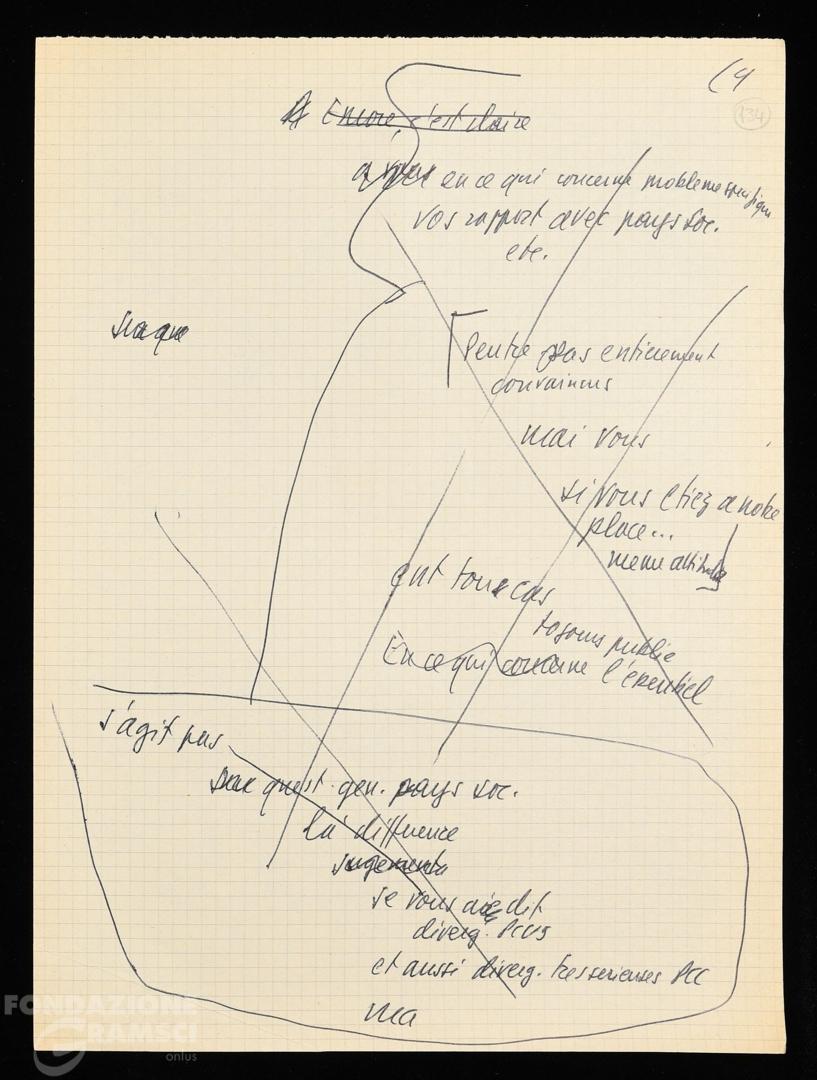 (4
134
Encore, c'est claire
en ce qui concerne probleme specifique
vos rapport avec pays soc.
etc.
Peutre pas entierement
convaincus
mai vous
si vous etiez a notre
place...
meme attitude
ent tous cas
tojours publie
En ce qui concerne l'essentiel
s'agit pas
quest. gen. pays soc.
là difference
jugements
Je vous ai dit
diverg. PCUS
et aussi diverg. tres serieuses PCC
ma
FONDAZIONE
GRAMSCI
onlus